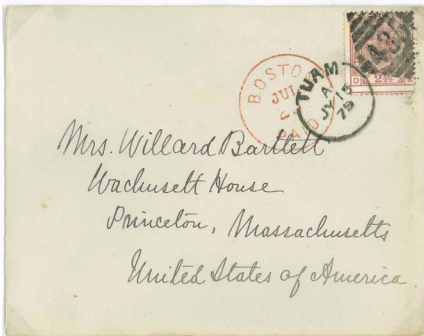 BOSTON
JUL
PAID
TUAM
A
JY 15
79
Mrs. Willard Bartlett
Wachusett House
Princeton, Massachusetts
United States of America